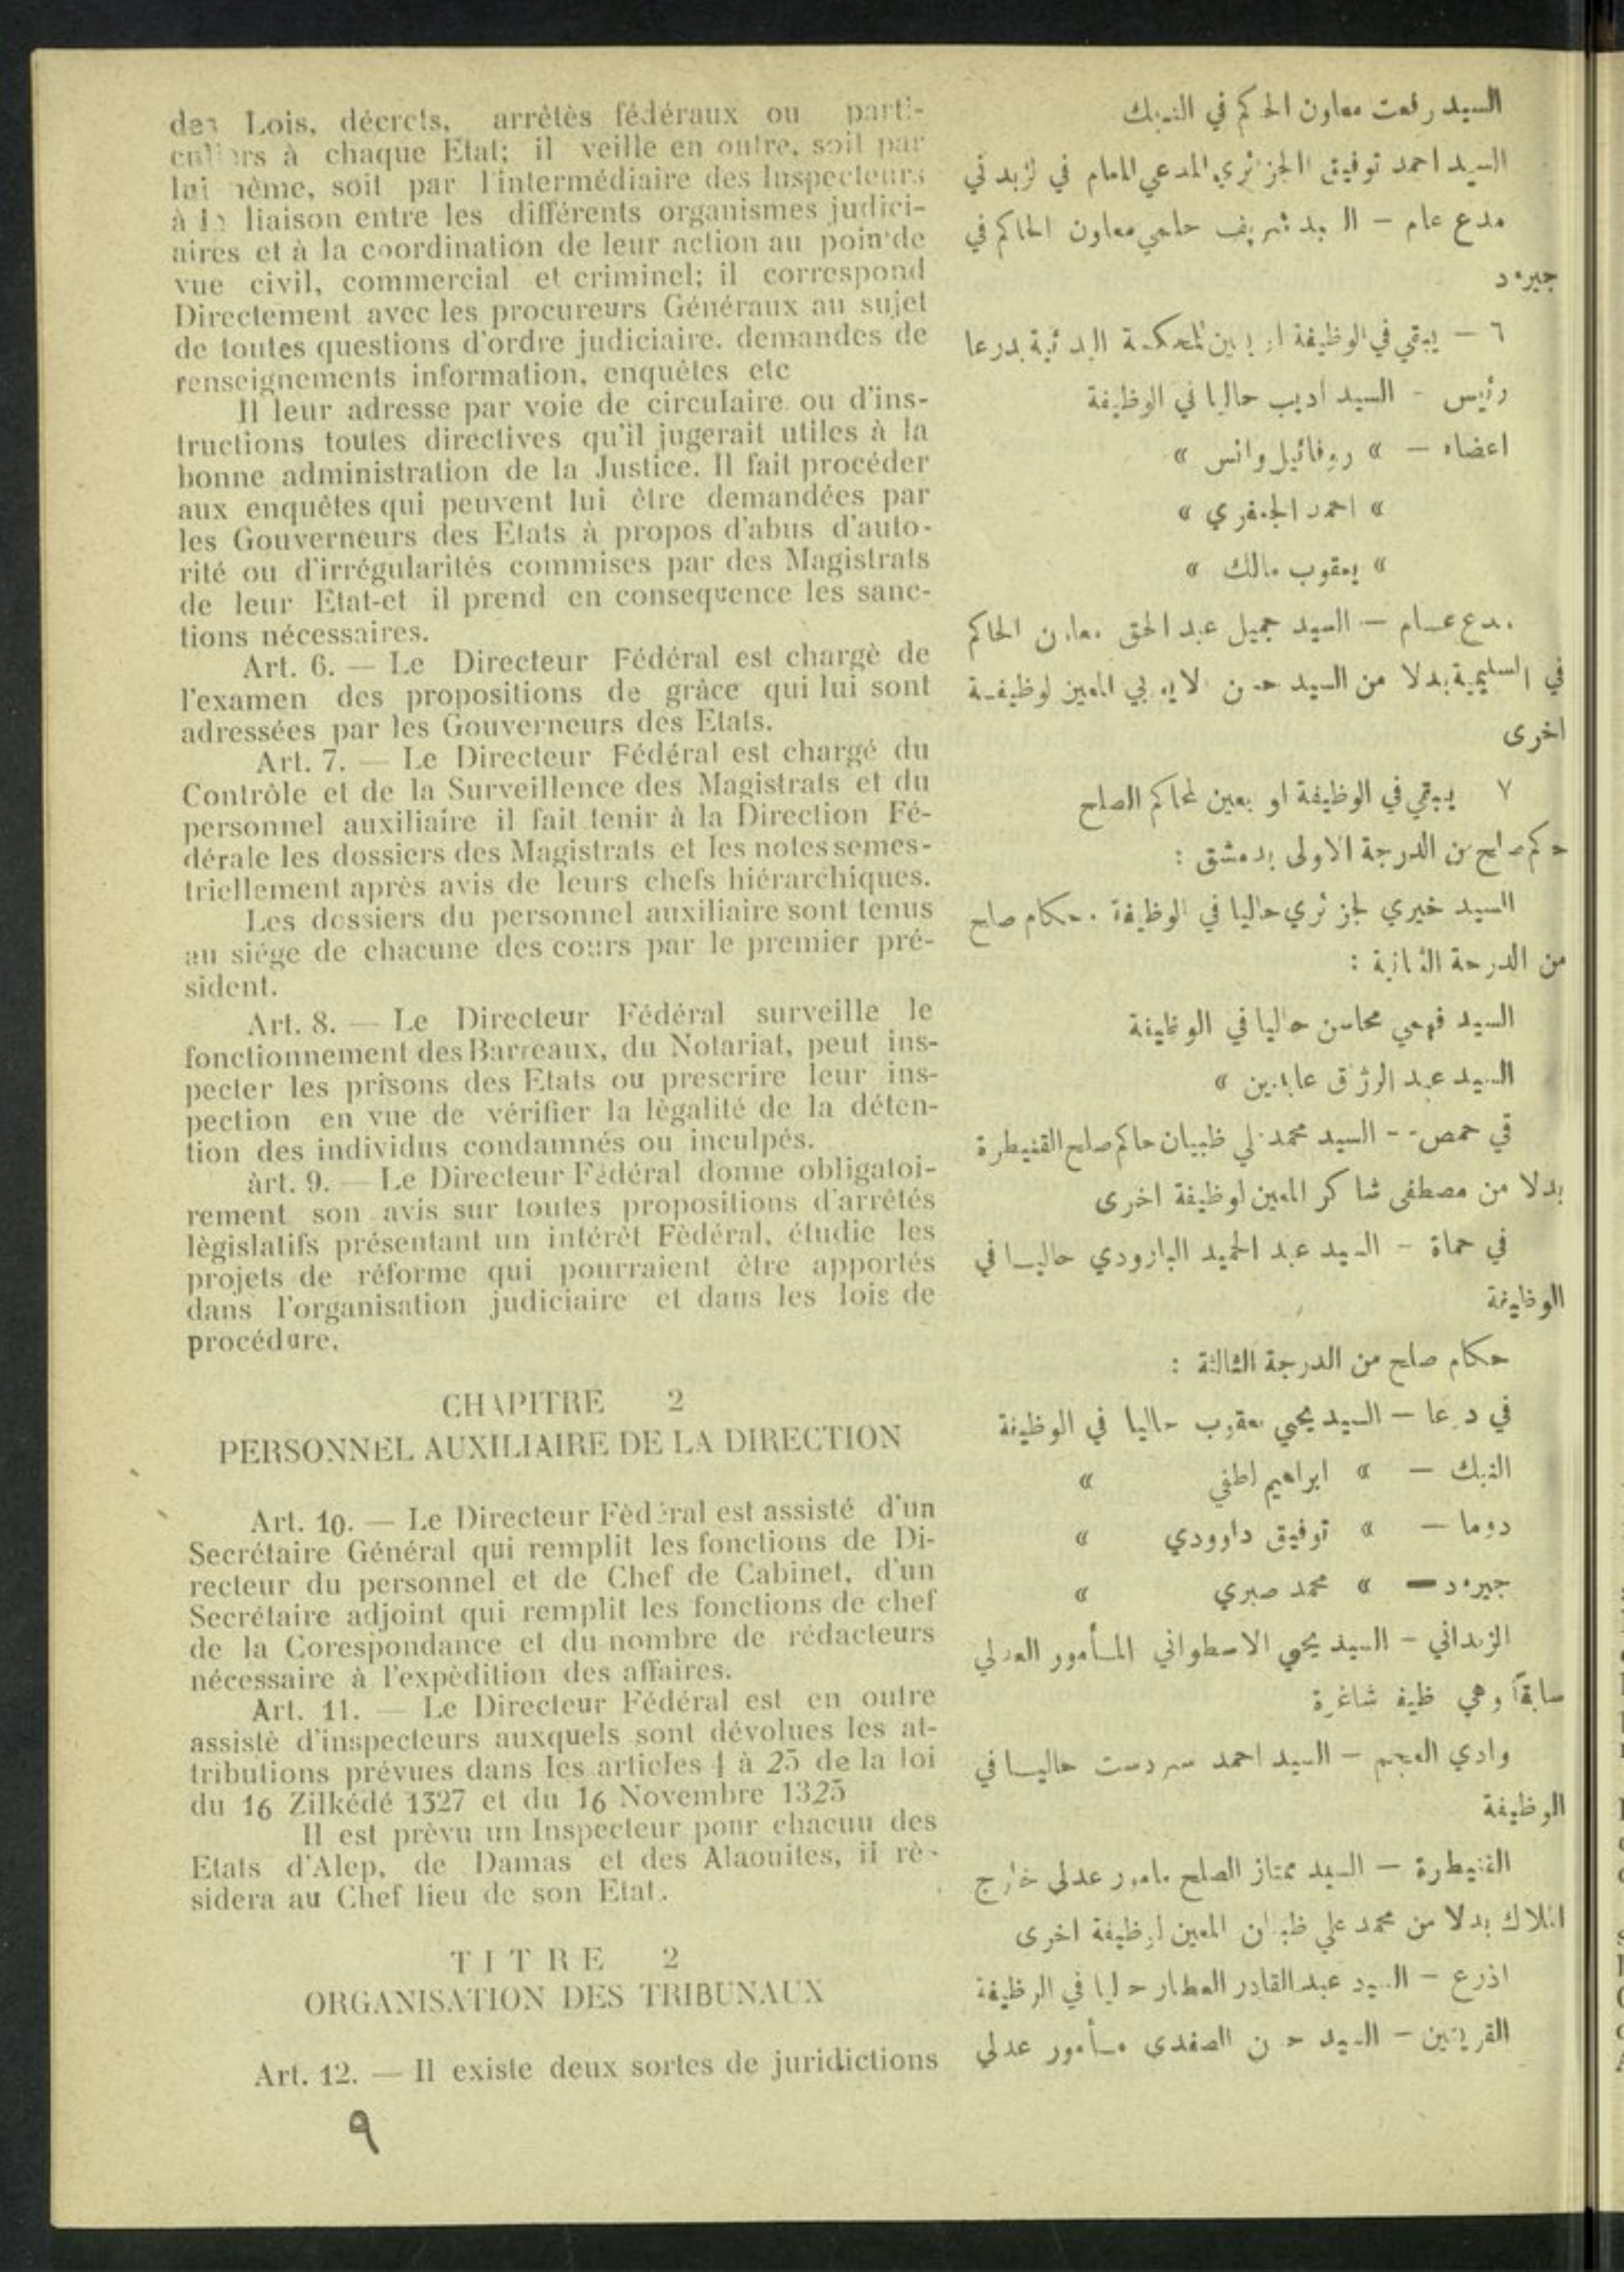 des Lois, décrets, arrêtès fédéraux ou parti-
culiers à chaque Etat; il veille en outre, soit par
lui même, soit par l'intermédiaire des Inspecteurs
à la liaison entre les différents organismes judici-
aires et à la coordination de leur action au poin de
vue civil, commercial et criminel; il correspond
Directement avec les procureurs Généraux au sujet
de toutes questions d'ordre judiciaire. demandes de
renseignements information, enquêtes etc
Il leur adresse par voie de circulaire ou d'ins-
tructions toutes directives qu'il jugerait utiles à la
bonne administration de la Justice. Il fait procéder
aux enquêtes qui peuvent lui être demandées par
les Gouverneurs des Etats à propos d'abus d'auto-
rité ou d'irrégularités commises par des Magistrats
de leur Etat-et il prend en consequence les sanc-
tions nécessaires.
Art. 6. — Le Directeur Fédéral est chargè de
l'examen des propositions de grâce qui lui sont
adressées par les Gouverneurs des Etats.
Art. 7. — Le Directeur Fédéral est chargé du
Contrôle et de la Surveillence des Magistrats et du
personnel auxiliaire il fait tenir à la Direction Fé-
dérale les dossiers des Magistrats et les notes semes-
triellement après avis de leurs chefs hiérarchiques.
Les dossiers du personnel auxiliaire sont tenus
au siége de chacune des cours par le premier pré-
sident.
Art. 8. — Le Directeur Fédéral surveille le
fonctionnement des Barreaux, du Notariat, peut ins-
pecter les prisons des Etats ou prescrire leur ins-
pection en vue de vérifier la lègalité de la déten-
tion des individus condamnés ou inculpés.
àrt. 9. — Le Directeur Fédéral donne obligatoi-
rement son avis sur toutes propositions d'arrêtés
lègislatifs présentant un intérêt Fèdéral, étudie les
projets de réforme qui pourraient être apportés
dans l'organisation judiciaire et dans les lois de
procédure.
CHAPITRE 2
PERSONNEL AUXILIAIRE DE LA DIRECTION
Art. 10. — Le Directeur Fèdéral est assisté d'un
Secrétaire Général qui remplit les fonctions de Di-
recteur du personnel et de Chef de Cabinet, d'un
Secrétaire adjoint qui remplit les fonctions de chef
de la Corespondance et du nombre de rédacteurs
nécessaire à l'expèdition des affaires.
Art. 11. — Le Directeur Fédéral est en outre
assistè d'inspecteurs auxquels sont dévolues les at-
tributions prévues dans les articles 4 à 25 de la loi
du 16 Zilkédé 1327 et du 16 Novembre 1325
Il est prèvu un Inspecteur pour chacun des
Etats d'Alep, de Damas et des Alaouites, il rè-
sidera au Chef lieu de son Etat.
TITRE 2
ORGANISATION DES TRIBUNAUX
Art. 12. — Il existe deux sortes de juridictions
٩
السيد رفعت معاون الحاكم في النبك
السيد احمد توفيق الجزائري المدعي العام في الزبداني
مدع عام — السيد شريف حلمي معاون الحاكم في
جيرود
٦ — يبقي في الوظيفة او يعين للمحكمة البدائية بدرعا
رئيس - السيد اديب حاليا في الوظيفة
اعضاء — » روفائيل وانس »
» احمد الجعفري »
» يعقوب مالك »
مدع عام — السيد جميل عبد الحق معاون الحاكم
في السليمية بدلا من السيد حسن الايوبي المعين لوظيفة
اخرى
٧ يبقي في الوظيفة او يعين لمحاكم الصلح
حاكم صلح من الدرجة الاولى بدمشق :
السيد خيري الجزائري حاليا في الوظيفة . حكام صلح
من الدرجة الثانية :
السيد فهمي محاسن حاليا في الوظيفة
السيد عبد الرزاق عابدين »
في حمص -- السيد محمد علي ظبيان حاكم صلح القنيطرة
بدلا من مصطفى شاكر المعين لوظيفة اخرى
في حماة - السيد عبد الحميد البارودي حاليا في
الوظيفة
حكام صلح من الدرجة الثالثة :
في درعا — السيد يحيى يعقوب حاليا في الوظيفة
النبك — » ابراهيم لطفي »
دوما — » توفيق داوودي »
جيرود — » محمد صبري »
الزبداني - السيد يحيى الاسطواني المأمور العدلي
سابقاً وهي وظيفة شاغرة
وادي العجم — السيد احمد سردست حاليا في
الوظيفة
القنيطرة — السيد ممتاز الصلح مامور عدلي خارج
الملاك بدلا من محمد علي ظبيان المعين لوظيفة اخرى
اذرع - السيد عبد القادر العطار حاليا في الوظيفة
القريتين - السيد حسن الصفدى مأمور عدلي